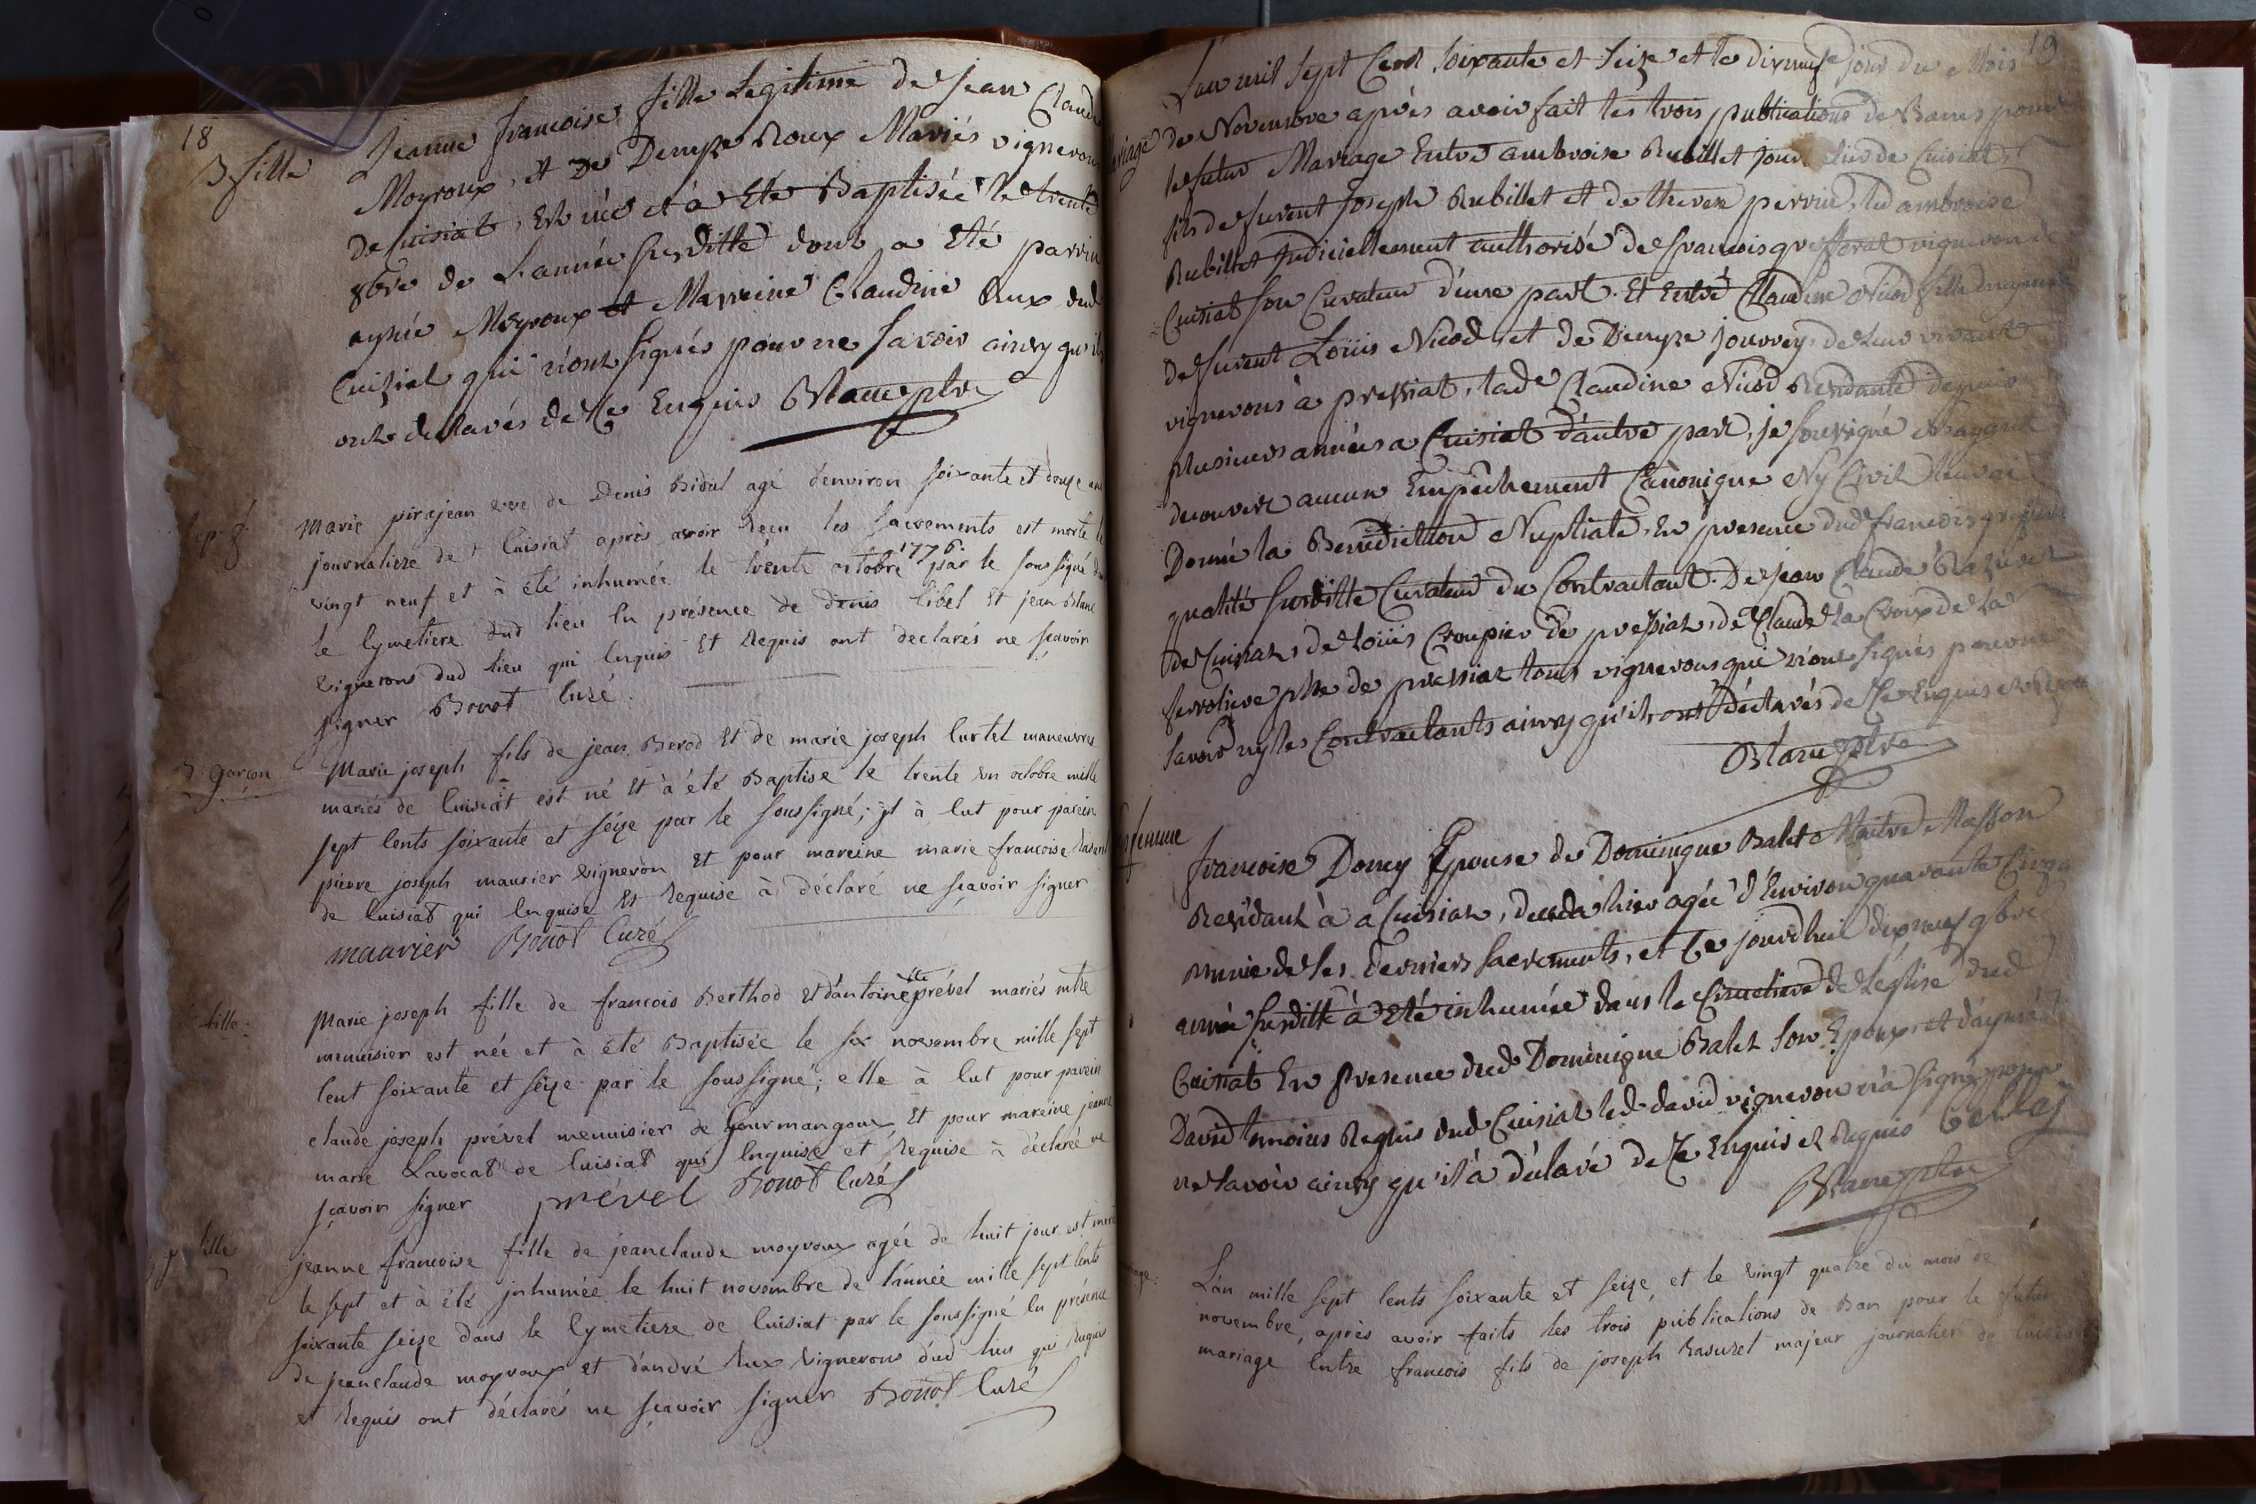 18
B fille
Jeanne francoise fille Legitime de Jean Claude
Moyroux, et de Denyse Roux Mariés vignerons
de Cuisiat, Est née et à Eté Baptisée le trente
8bre de L'année susditte dont a Eté parrin
aymé Moyroux et Marreine Claudine Rux dud
Cuisiat qui n'ont signés pour ne savoir ainsy qu'ils
ont declarés de ce Enquis Blanc ptre
Marie pirajean veve de Denis Bidal agé denviron soixante et douze ans
journaliere de Cuisiat après avoir Reçu les sacrements est morte le
vingt neuf et à été inhumée le trente octobre 1776. par le soussigné dans
le Cymetiere dud lieu En présence de denis libel Et jean Blanc
vignerons dud lieu qui Enquis Et Requis ont déclarés ne sçavoir
signer Bonot Curé
B. garçon
Marie joseph fils de jean Berod Et de marie joseph Curtel maneuvres
mariés de Cuisiat est né Et à été Baptise le trente un octobre mille
sept Cents soixante et seize par le soussigné; jl à Eut pour parein
pierre joseph maurier vigneron Et pour mareine marie francoise
de Cuisiat qui Enquise Et Requise à déclaré ne sçavoir signer
maurier Bonot Curé
fille
Marie joseph fille de francois Berthod Et d'antoinette prével mariés mtre
menuisier est née et à été Baptisée le six novembre mille sept
Cent soixante et seize par le soussigné; elle à Eut pour parein
claude joseph prével menuisier de Gourmangoux Et pour mareine jeanne
marie Lavocat de Cuisiat qui Enquise et Requise à déclarée ne
sçavoir signer prével Bonot Curé
fille
jeanne francoise fille de jeanclaude moyroux agée de huit jour est morte
le sept et à été jnhumée le huit novembre de l'année mille sept Cents
soixante seize dans le Cymetiere de Cuisiat par le soussigné En présence
de jeanclaude moyroux et d'andré Rux vignerons dud lieu qui Enquis
et Requis ont déclarés ne sçavoir signer Bonot Curé
19
mariage
L'an mil sept Cent soixante et seize et le dixneufe jour du Mois
de Novembre après avoir fait les trois publications de Bans pour
le futur Mariage Entre ambroise Rubillet journalier de Cuisiat,
fils de furent Joseph Rubillet et de therese perrin, led ambroise
Rubillet judiciellement authorisé de francois greffoz vigneron de
Cuisiat son Curateur d'une part. Et Entre Claudine Nicod fille
de furent Louis Nicod, et de Denyse jouvrey, de leur vivant
vignerons à pressiat, lade Claudine Nicod Residante depuis
plusieurs années a Cuisiat d'autre part, je soussigné n'ayant
decouvert aucun Empêchement Canonique Ny Civil leur ai
Donné la Benediction Nuptiale, En presence dud francois
qualité susditte Curateur du Contractant. De Jean Claude
de Cuisiat, de Louis Croupier de pressiat, de Claude La Croix de la
psse de pressiat tous vignerons qui n'ont signés pour ne
savoir ny les Contractants ainsy qu'ils ont déclarés de ce Enquis et Requis
Blanc ptre
femme
francoise Doucy Epouse de Dominique Balet Maitre Masson
Residant à a Cuisiat, decedée hier agée d'Environ quarante Cinq ans
munie de ses derniers sacrements, et ce jourdhui dixneuf 9bre
année susditte à Eté inhumée dans le Cimetiere de L'eglise dud
Cuisiat En presence dud Dominique Balet son Epoux, et d'aymé
David temoins Requis dud Cuisiat led david vigneron n'a signé pour
ne savoir ainsy qu'il a déclaré de ce Enquis et Requis
Blanc ptre
Lan mille sept Cents soixante et seize et le vingt quatre du mois de
novembre, après avoir faits les trois publications de Ban pour le futur
mariage Entre francois fils de joseph Rasurel majeur journalier de Cuisiat